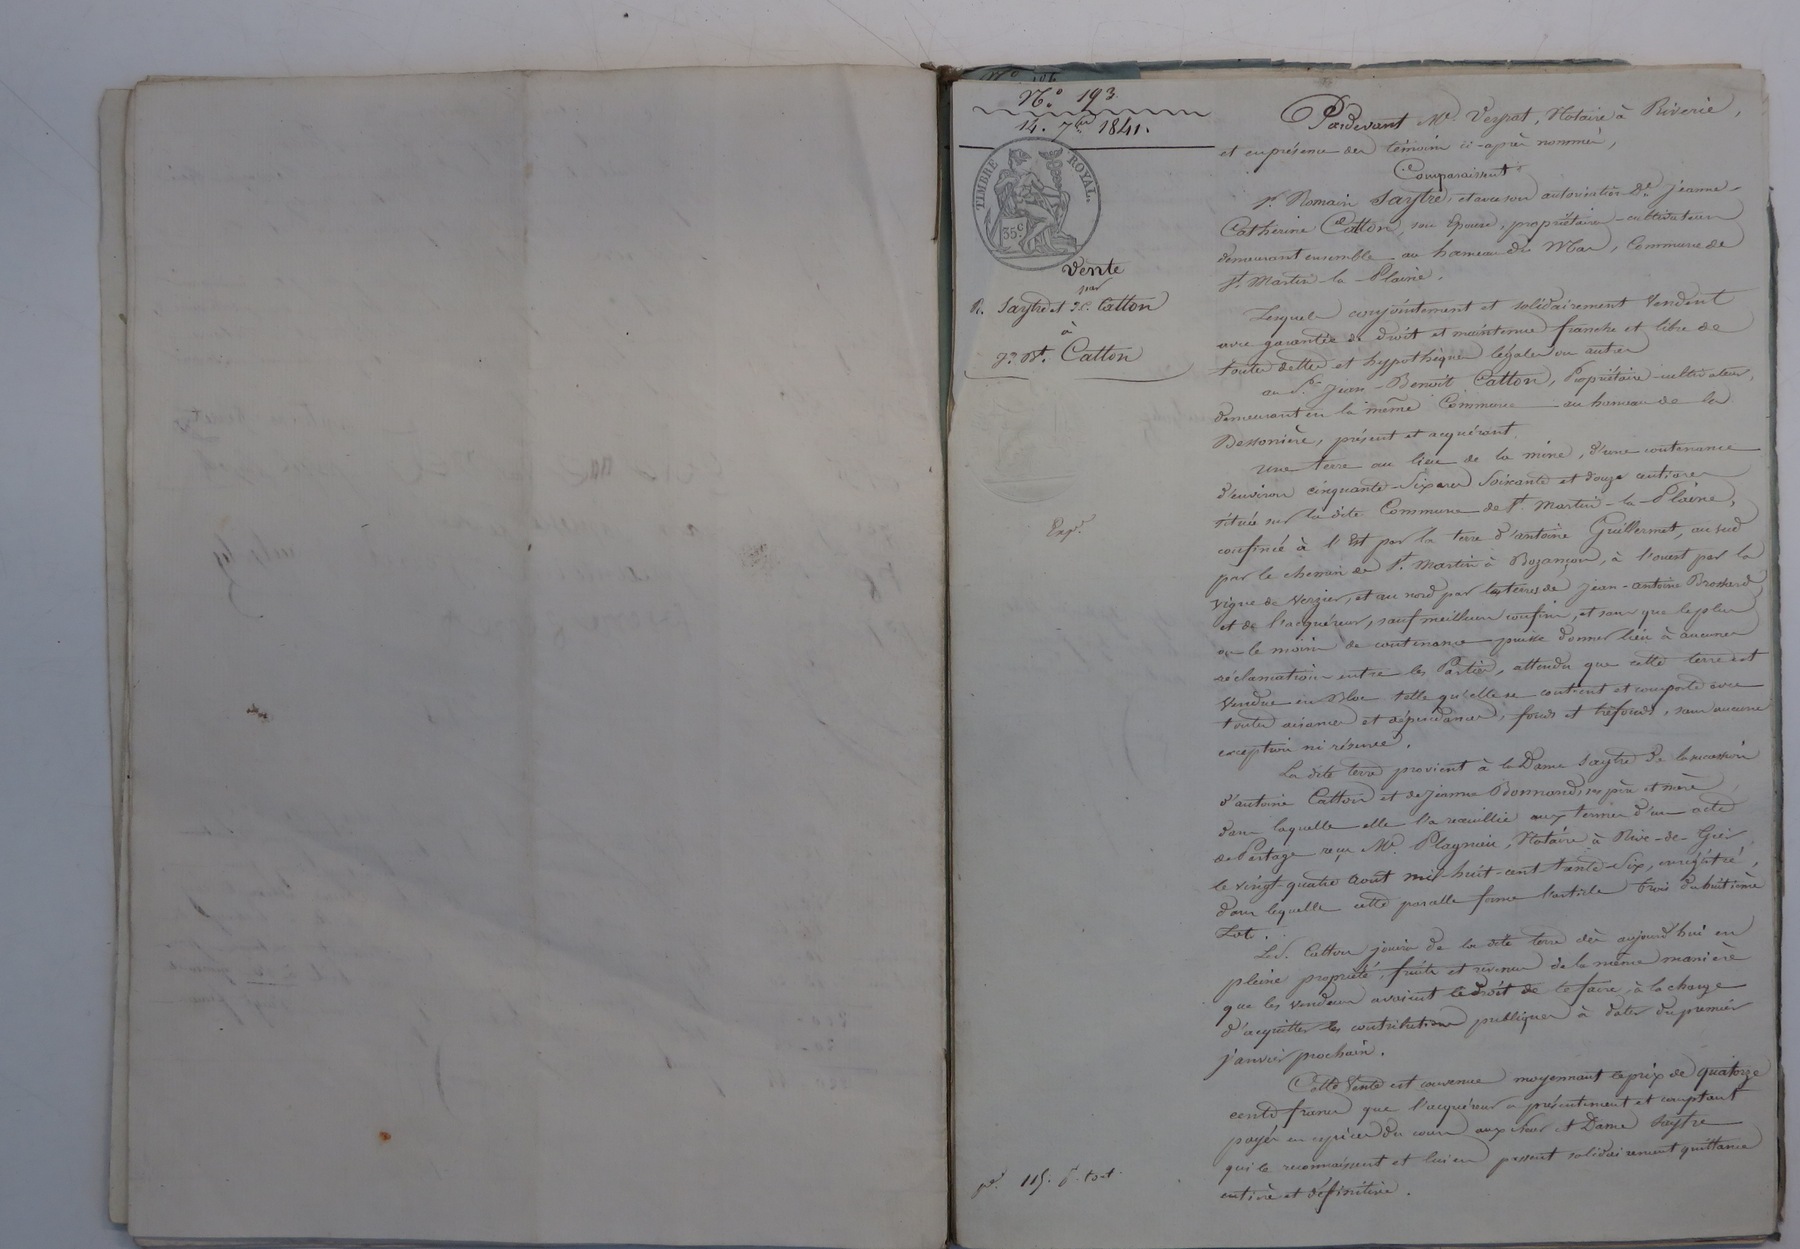 N.º 193.
14. 7bre 1841.
TIMBRE ROYAL.
35.c
Vente
par
R. Saytre et J.C. Catton
à
J.n B.t Catton
Exp.é
Pardevant Me. Veyrat, Notaire à Riverie,
et en présence des témoins ci-après nommés,
Comparaissent
Sr. Romain Saytre, et avec son autorisation De. Jeanne-
Catherine Catton, son Epouse, propriétaires-cultivateurs
demeurant ensemble au hameau du Mas, Commune de
St. Martin-la-Plaine.
Lesquels conjointement et solidairement Vendent
avec garantie de droit et maintenue franche et libre de
toutes dettes et hypothèques légales ou autres
au Sr. Jean-Benoit Catton, Propriétaire-cultivateur,
demeurant en la même Commune au hameau de la
Bessonière, présent et acquérant,
Une terre au lieu de la mine, d'une contenance
d'environ cinquante-six ares soixante et douze centiares
située sur la dite Commune de St. Martin-la-Plaine,
confinée à l'Est par la terre d'antoine Guillermet, au sud
par le chemin de St. Martin à Bozançon, à l'ouest par la
vigne de Verzier, et au nord par les terres de Jean-antoine Brossard
et de l'acquéreur, sauf meilleurs confins, et sans que le plus
ou le moins de contenance puisse donner lieu à aucune
réclamation entre les Parties, attendu que cette terre est
Vendue en Bloc telle qu'elle se contient et comporte avec
toutes aisances et dépendances, fonds et tréfonds, sans aucune
exception ni réserve.
La dite terre provient à la Dame Saytre de la succession
d'antoine Catton et de Jeanne Bonnand, ses père et mère,
dans laquelle elle l'a recueillie aux termes d'un acte
de Partage reçu Me. Plagnieu, Notaire à Rive-de-Gier,
le vingt-quatre Aout mil-huit-cent trente-six, enregistré,
dans lequelle cette parcelle forme l'article trois du huitième
Lot.
Le S. Catton jouira de la dite terre dès aujourd'hui en
pleine propriété, fruits et revenus de la même manière
que les vendeurs avaient le droit de le faire, à la charge
d'acquitter les contributions publiques à dater du premier
janvier prochain.
Cette Vente est convenue moyennant le prix de quatorze
cents francs que l'acquéreur a présentement et comptant
payés en espèces du cours aux Sieur et Dame Saytre
qui le reconnaissent et lui en passent solidairement quittance
entière et définitive.